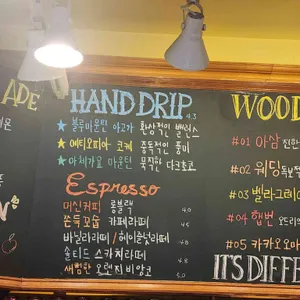 ADE
HAND DRIP 4.3
★ 블루마운틴 아고가 환상적인 밸런스
★ 에티오피아 코케 중독적인 풍미
★ 아체가요 마운틴 묵직한 다크초코
Espresso
머신커피 롱블랙 4.0
쫀득꼬숩 카페라떼 4.5
바닐라라떼 / 헤이즐넛라떼
솔티드 스카치라떼 4.8
새콤한 오렌지비앙코 5.0
WOOD
#01 아삼 진한
#02 웨딩
#03 벨라그레이
#04 햅번 오드리
#05 카카오
IT'S DIFFE